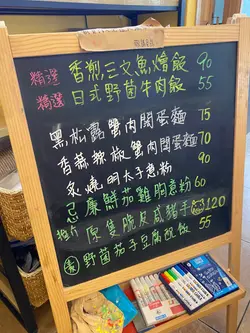 精選 香煎三文魚燴飯 90
精選 日式野菌牛肉飯 55
黑松露蟹肉開蛋麵 75
香蒜辣椒蟹肉開蛋麵 70
炙燒明太子意粉 90
忌廉鮮茄雞胸意粉 60
推介 原隻脆皮咸豬手 120
素 野菌茄子豆腐飯 55